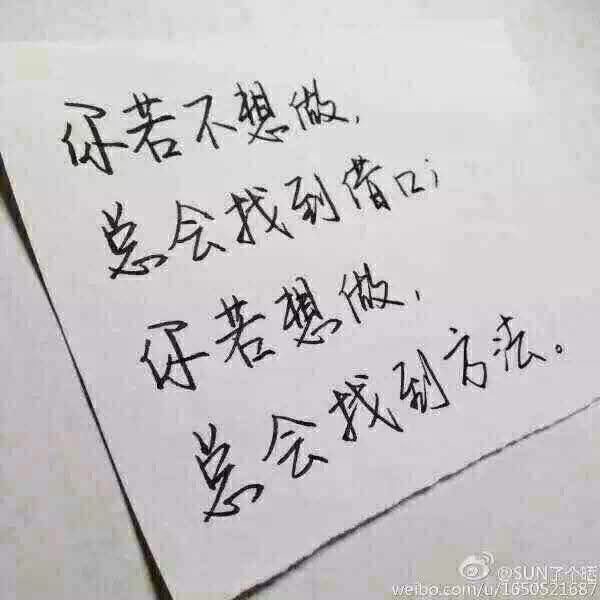 你若不想做，
总会找到借口；
你若想做，
总会找到方法。
@SUN了个晒
weibo.com/u/1650521687